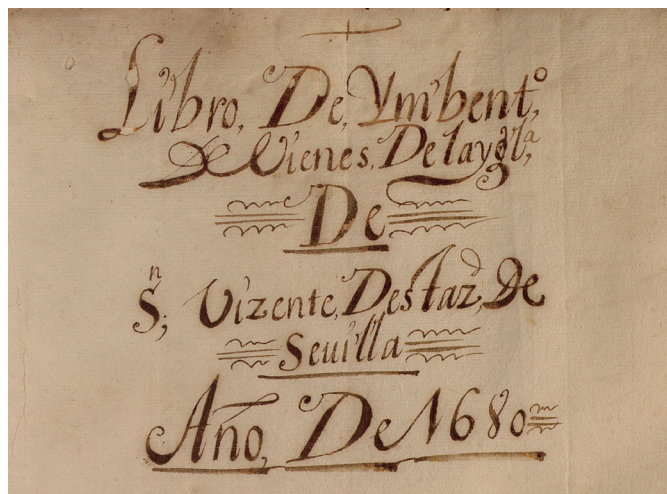 Libro, De, Ymbent.º
De Vienes, De la ygl.ª
De
S.n Vizente, Desta z.d De
Sevilla
Año, De 1680